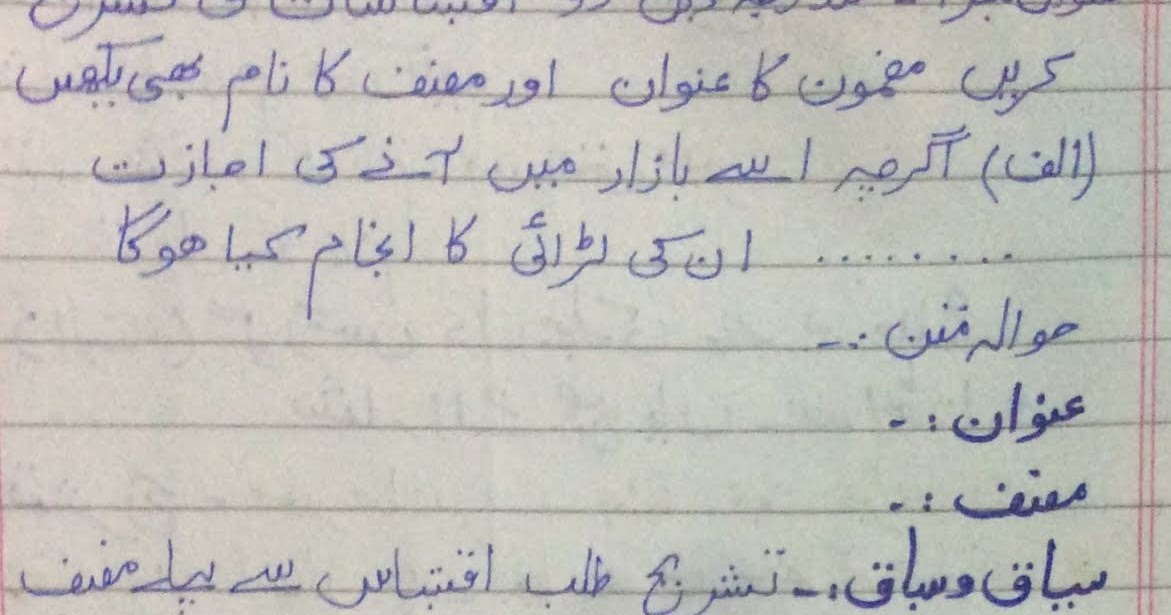 کریں مضمون کا عنوان اور مصنف کا نام بھی لکھیں
(الف) اگرچہ اسے بازار میں آنے کی اجازت
........ ان کی لڑائی کا انجام کیا ھوگا
حوالہ متن :-
عنوان :-
مصنف :-
سیاق و سباق :- تشریح طلب اقتباس سے پہلے مصنف